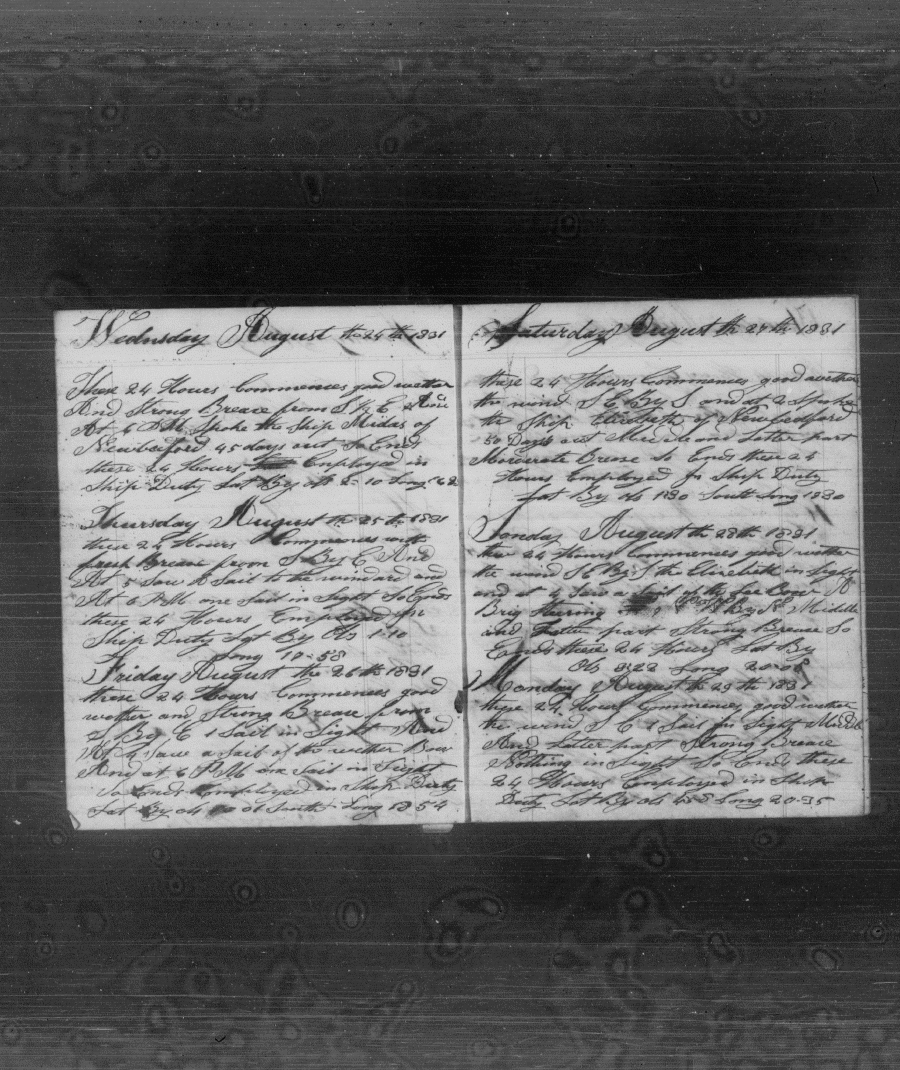 Wednsday August the 24th 1831
These 24 Hours Commences good wether
And Strong Brease from S by E
At 6 PM Spoke the Ship Midas of
Newbedford 45 days out So Ends
these 24 Hours Employed in
Ship Duty Lat By Ob 2-10 Long
Thursday August the 25th 1831
these 24 Hours Commences with
fresh Brease from S By E And
At 5 Saw A Sail to the windard and
At 6 P M one Sail in Sight So Ends
these 24 Hours Employed in
Ship Duty Lat By Ob 1-10
Long 17-58
Friday August the 26th 1831
these 24 Hours Commences good
wether and Strong Brease from
S By E 1 Sail in Sight And
At 4 Saw a Sail of the wether Bow
And at 6 P M one Sail in Sight
So Ends Employed in Ship Duty
Lat By Ob South Long 18 54
Saturday August the 27th 1831
these 24 Hours Commences good wether
the wind S E By S and at 2 Spoke
the Ship Elizebeth of Newbedford
50 Days out Middle and Latter part
Moderate Brease So Ends these 24
Hours Employed in Ship Duty
Lat By Ob 1 30 South Long 18 30
Sonday August the 28th 1831
these 24 Hours Commences good wether
the wind S E By S the Elizebeth in Sight
and at 4 Saw a Sail of the Lee Bow A
Brig Stearing By S Middle
and Latter part Strong Brease So
Ends these 24 Hours Lat By
Ob 3-22 Long 20-05
Monday August the 29th 1831
these 24 Hours Commences good wether
the wind S E 1 Sail in Sight Middle
And Latter part Strong Brease
Nothing in Sight So Ends these
24 Hours Employed in Ship
Duty Lat By Ob Long 20-35